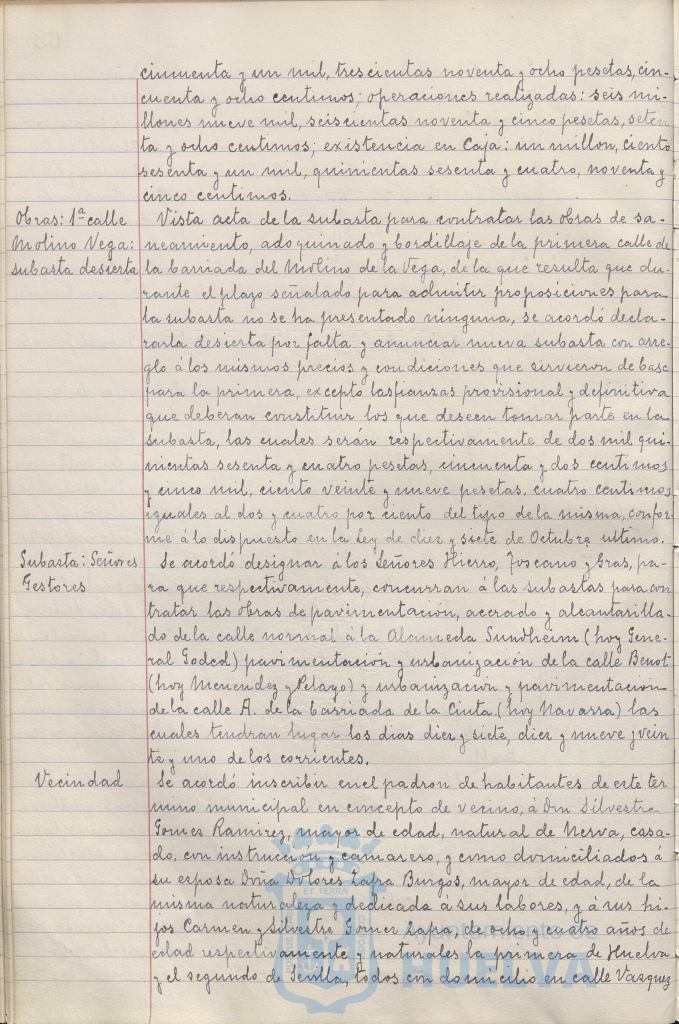 cincuenta y un mil, trescientas noventa y ocho pesetas, cin-
cuenta y ocho centimos; operaciones realizadas: seis mi-
llones nueve mil, seiscientas noventa y cinco pesetas, seten
ta y ocho centimos; existencia en Caja: un millon, ciento
sesenta y un mil, quinientas sesenta y cuatro, noventa y
cinco centimos.
Obras: 1ª calle
Molino Vega:
subasta desierta
Vista acta de la subasta para contratar las obras de sa-
neamiento, adoquinado y bordillaje de la primera calle de
la barriada del Molino de la Vega, de la que resulta que du-
rante el plazo señalado para admitir proposiciones para
la subasta no se ha presentado ninguna, se acordó decla-
rarla desierta por falta y anunciar nueva subasta con arre-
glo á los mismos precios y condiciones que sirvieron de base
para la primera, excepto las fianzas provisional y definitiva
que deberan constituir los que deseen tomar parte en la
subasta, las cuales serán respectivamente de dos mil qui-
nientas sesenta y cuatro pesetas, cincuenta y dos centimos
y cinco mil, ciento veinte y nueve pesetas, cuatro centimos
iguales al dos y cuatro por ciento del tipo de la misma, confor-
me á lo dispuesto en la Ley de diez y siete de Octubre ultimo.
Subasta: Señores
Gestores
Se acordó designar á los Señores Hierro, Toscano y Gras, pa-
ra que respectivamente, concurran á las subastas para con
tratar las obras de pavimentación, acerado y alcantarilla-
do de la calle normal á la Alameda Sundheim (hoy Gene-
ral Goded) pavimentación y urbanización de la calle Benot
(hoy Menendez y Pelayo) y urbanizacion y pavimentacion
de la calle A. de la barriada de la Cinta (hoy Navarra) las
cuales tendran lugar los dias diez y siete, diez y nueve y vein
te y uno de los corrientes.
Vecindad
Se acordó inscribir en el padron de habitantes de este ter
mino municipal en concepto de vecino, á Don Silvestre
Gomez Ramirez, mayor de edad, natural de Nerva, casa-
do, con instruccion y camarero, y como domiciliados á
su esposa Doña Dolores Zafra Burgos, mayor de edad, de la
misma naturaleza y dedicada á sus labores, y á sus hi-
jos Carmen y Silvestre Gomez Zafra, de ocho y cuatro años de
edad respectivamente y naturales la primera de Huelva
y el segundo de Sevilla, todos con domicilio en calle Vazquez
Ayuntamiento de
HUELVA